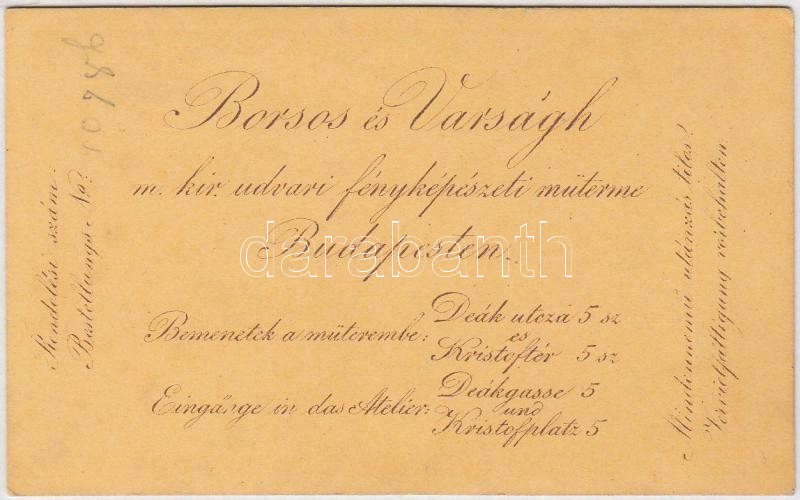 Borsos és Varságh
m. kir. udvari fényképészeti müterme
Budapesten.
Bemenetek a müterembe: Deák utcza 5 sz
és
Kristoftér 5 sz
Eingänge in das Atelier: Deákgasse 5
und
Kristofplatz 5
Rendelési szám.
Bestellungs No: 10786
Mindennemü utánzás tilos!
Vervielfältigung vorbehalten.
darabanth